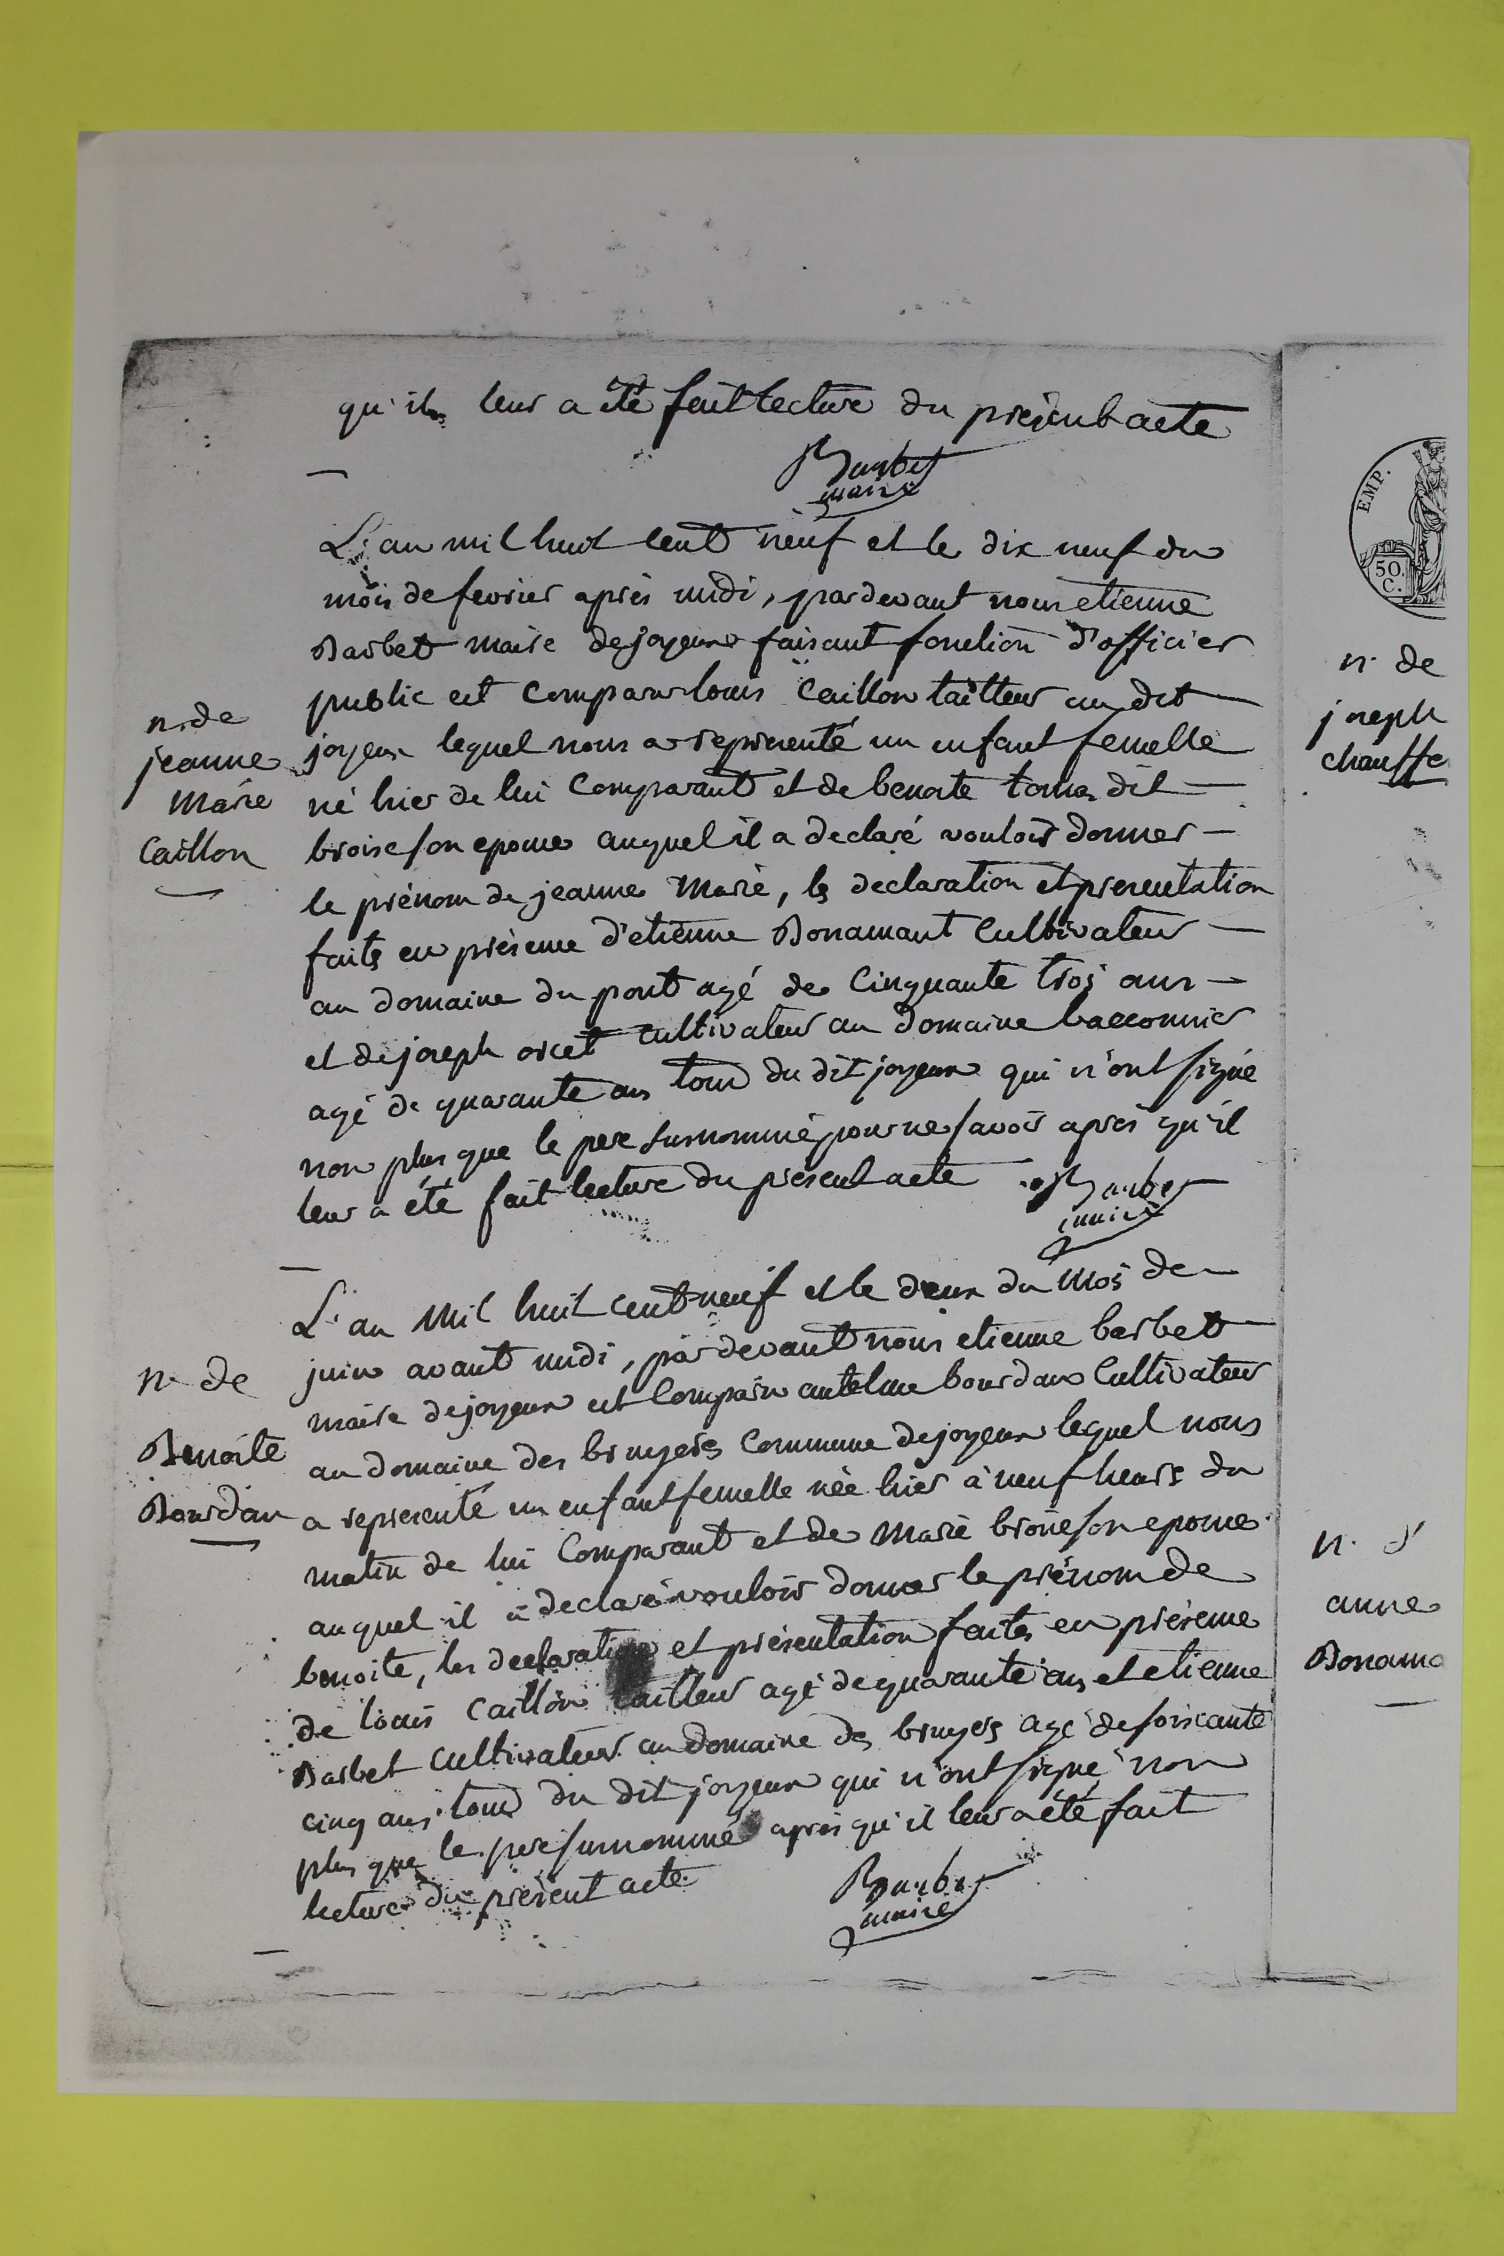 qu'il leur a été fait lecture du présent acte
Barbet
maire
L'an mil huit cent neuf et le dix neuf du
mois de fevrier après midi, pardevant nous etienne
Barbet maire de joyeux faisant fonction d'officier
public est comparu louis Caillon tailleur au dit
n. de
jeanne
Marie
Caillon
joyeux lequel nous a représenté un enfant femelle
né hier de lui Comparant et de benoite toma dit
broise son epouse auquel il a declaré vouloir donner
le prénom de jeanne Marie, la declaration et presentation
faite en présence d'etienne Bonamant Cultivateur
au domaine du pont agé de Cinquante trois ans
et de joseph orcet cultivateur au domaine baccounier
agé de quarante ans tous du dit joyeux qui n'ont signé
non plus que le pere surnommé pour ne savoir après qu'il
leur a été fait lecture du présent acte
Barbet
maire
L'an mil huit cent neuf et le deux du Mois de
juin avant midi, par devant nous etienne barbet
maire de joyeux est Comparu antelme bourdan Cultivateur
n. de
Benoite
Bourdan
au domaine des bruyeres Commune de joyeux lequel nous
a représenté un enfant femelle née hier à neuf heure du
matin de lui Comparant et de Marie broise son epouse
auquel il a declaré vouloir donner le prénom de
benoite, les declaration et présentation faites en présence
de louis Caillon tailleur agé de quarante ans et etienne
Barbet cultivateur au domaine des bruyers agé de soixante
cinq ans tous du dit joyeux qui n'ont signé non
plus que le pere surnommé après qu'il leur a été fait
lecture du présent acte
Barbet
maire
EMP.
50.
C.
n. de
joseph
chauffe
n. d'
anne
Bonama